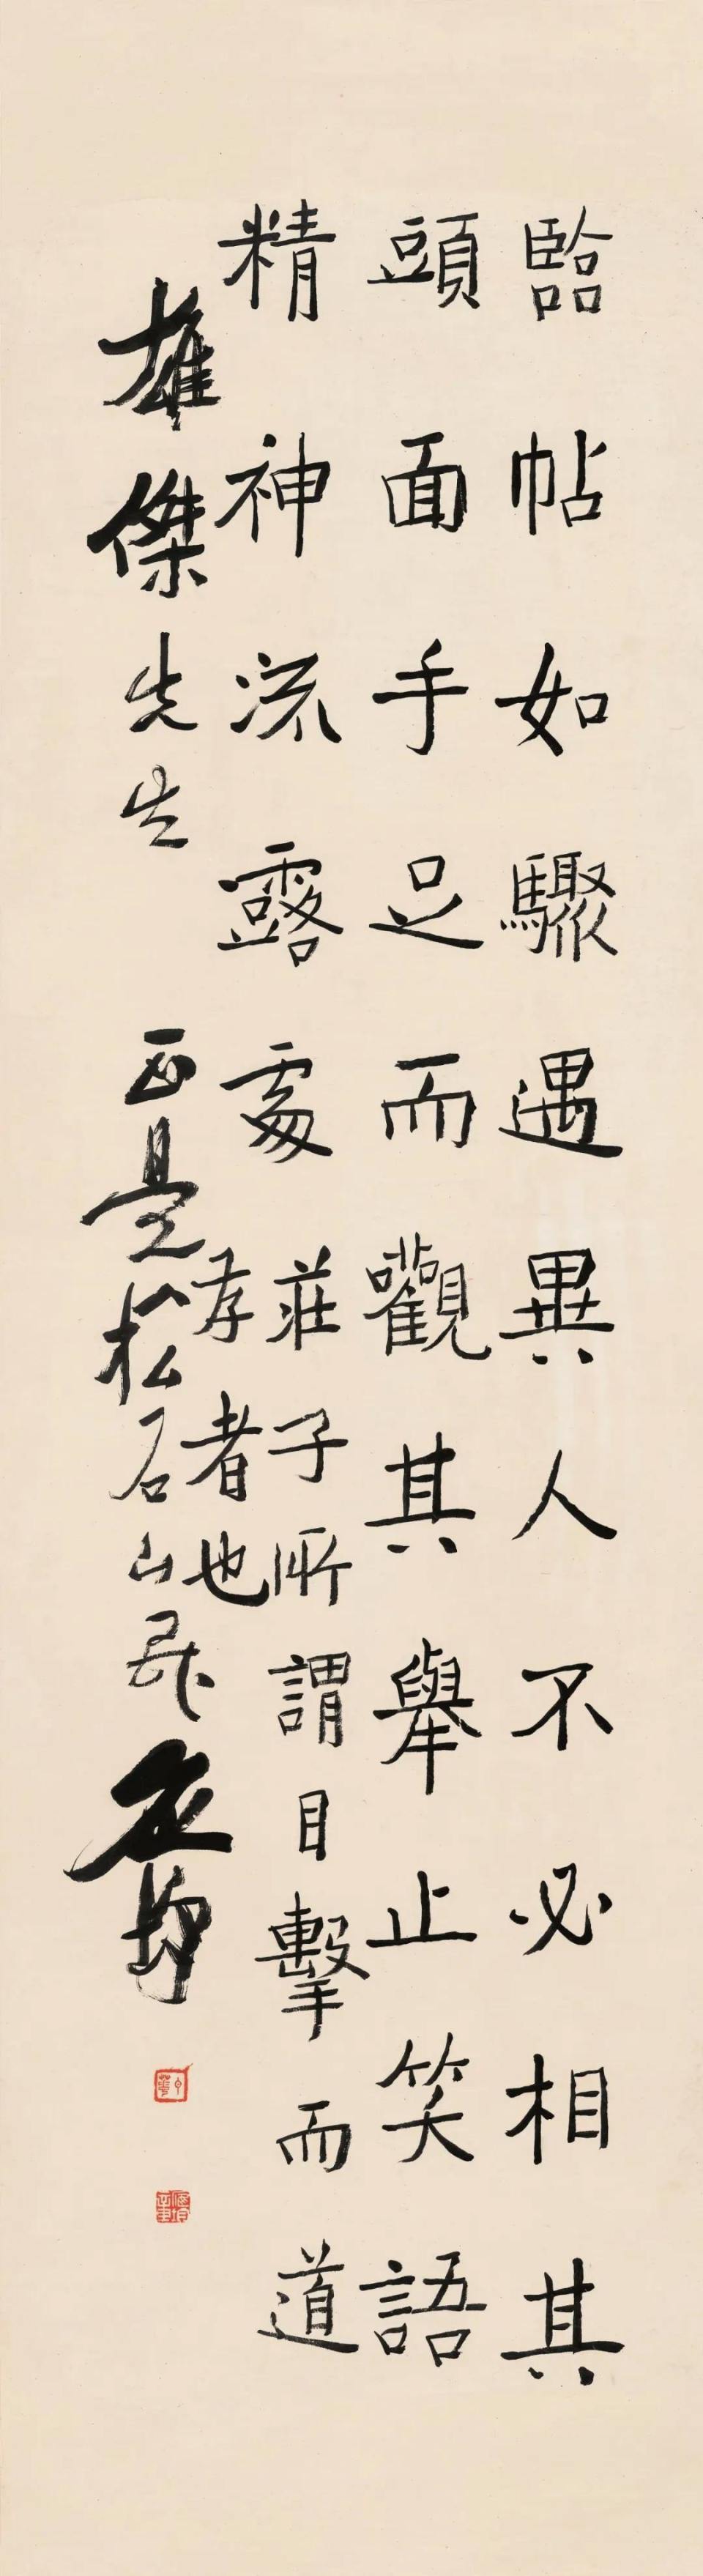 臨帖如驟遇異人不必相其
頭面手足而觀其舉止笑語
精神流露處莊子所謂目擊而道
存者也
雄傑先生 正是松石山